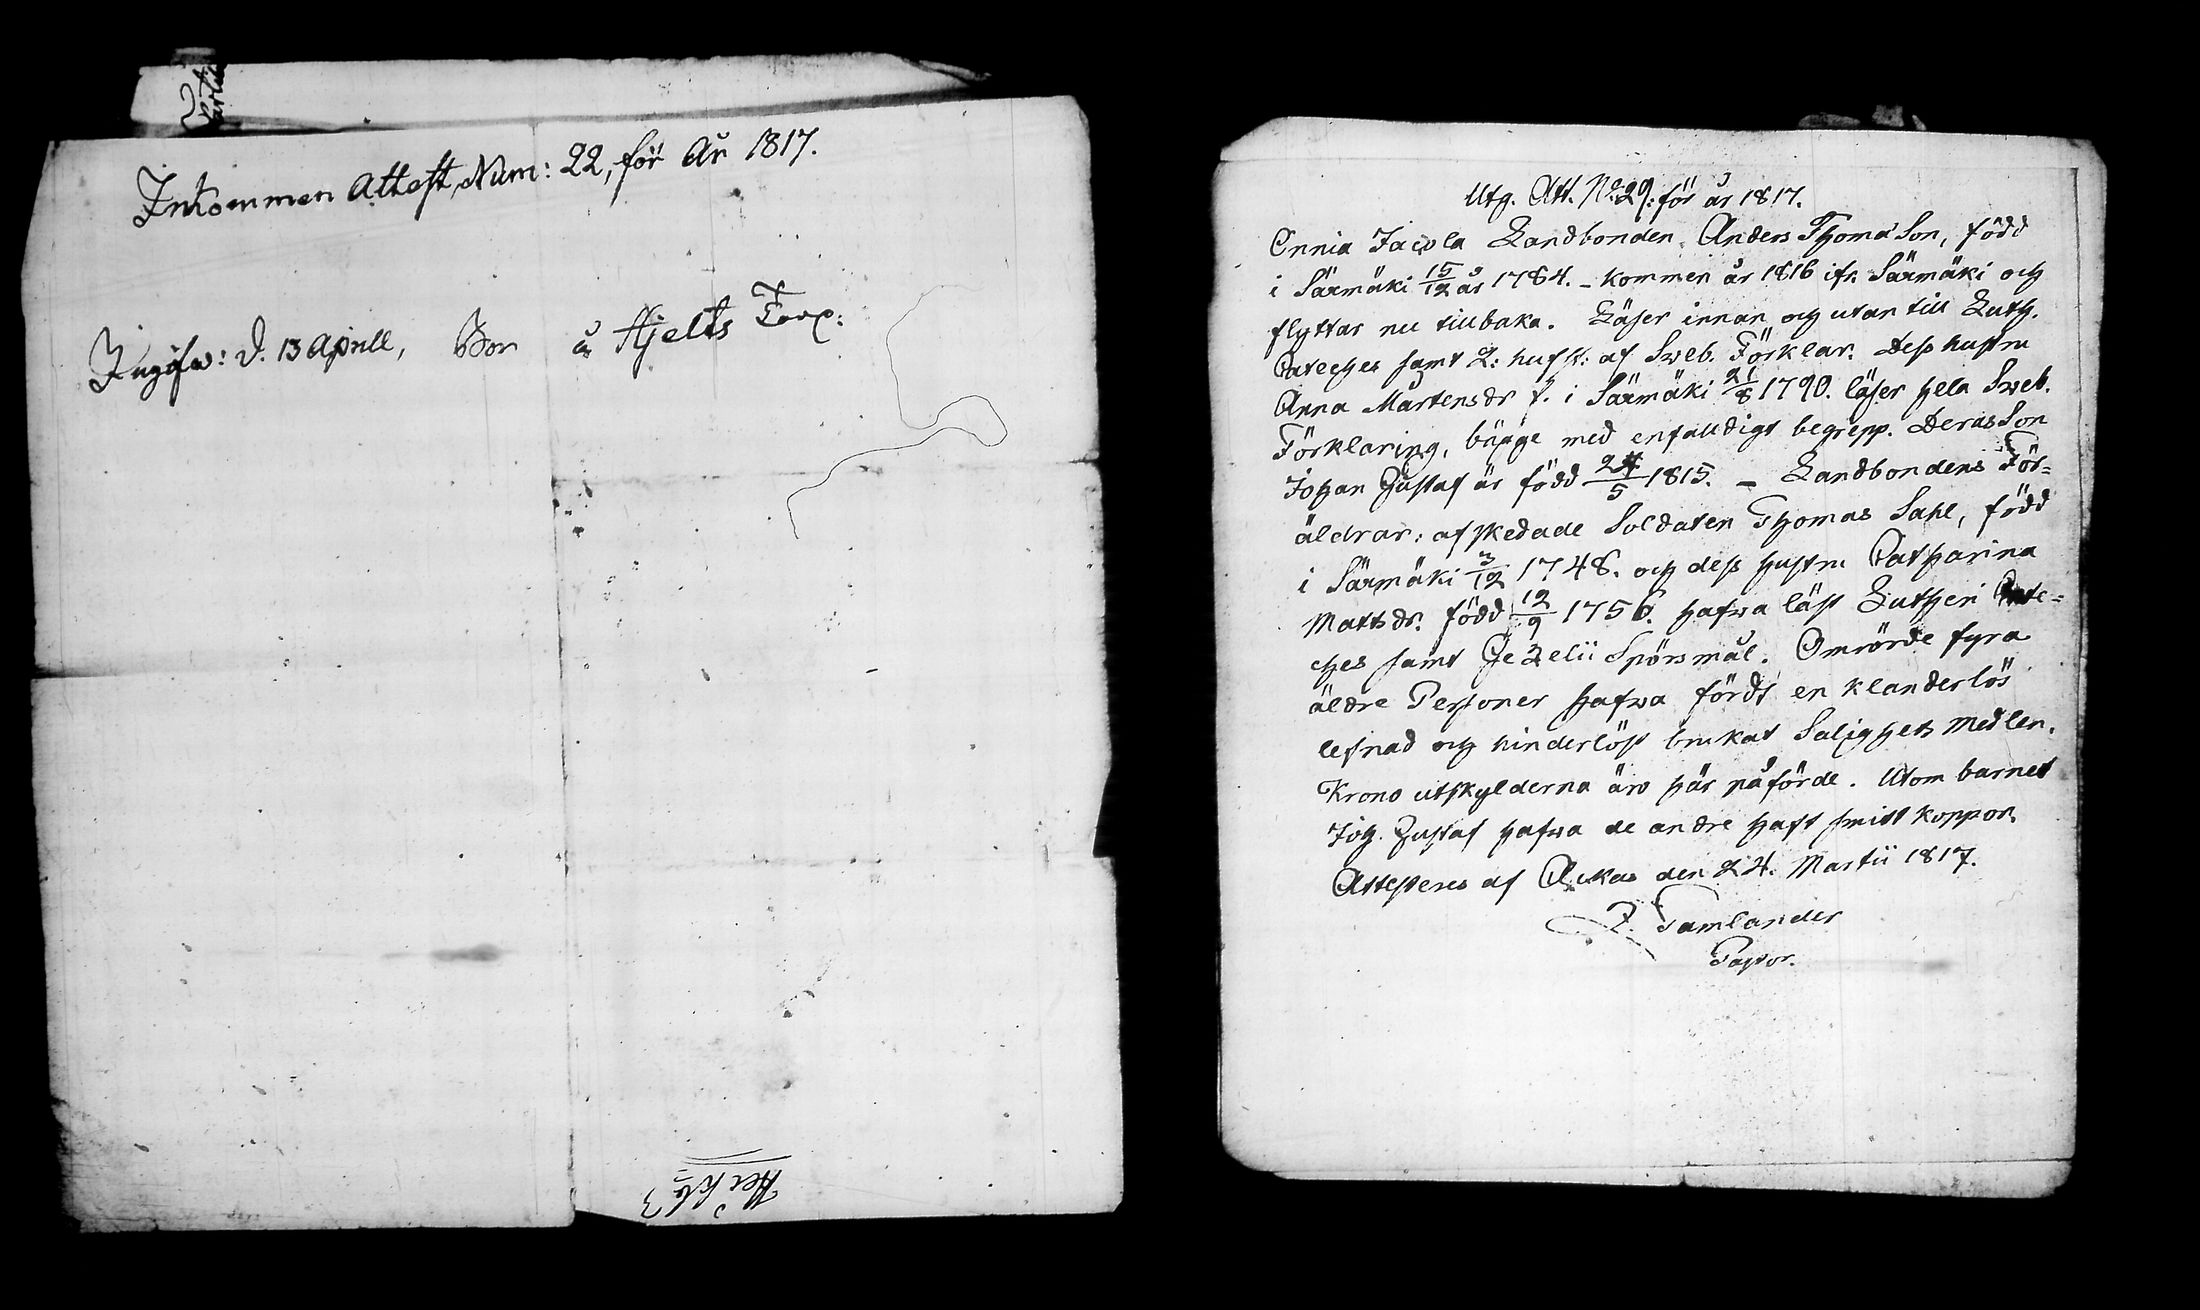 Inkommen Attest, Num: 22, för År 1817.
Ingifw: d. 13 Aprill, Bor å Hjelts Torp:
Utg. Att. No. 29: för år 1817.
Ennia Jacola Landbonden Anders ThomaSon, född
i Särmäki 15/12 år 1784. – kommen år 1816 ifr. Särmäki och
flyttar nu tillbaka. Läser innan och utan till Luth.
Cateches samt 2: hufst: af Sweb. Förklar. Dess hustru
Anna Mårtensdr f. i Särmäki 21/8 1790. läser hela Sweb.
Förklaring, bägge med enfaldigt begrepp. Deras Son
Johan Gustaf är född 24/5 1815. – Landbondens För=
äldrar: afskedade Soldaten Thomas Sahl, född
i Särmäki 3/12 1748. och dess hustru Catharina
Mattsdr. född 12/9 1756. hafwa läst Lutheri Cate=
ches samt Gezelii Spörsmål. Omrörde fyra
äldre Personer hafwa fördt en klanderlös
lefnad och hinderlöst brukat Salighets medlen.
Krono utskylderna äro här påförde. Utom barnet
Joh. Gustaf hafwa de andre haft smittkoppor.
Attesteres af Ackas den 24. Martii 1817.
Tamlander
Pastor.